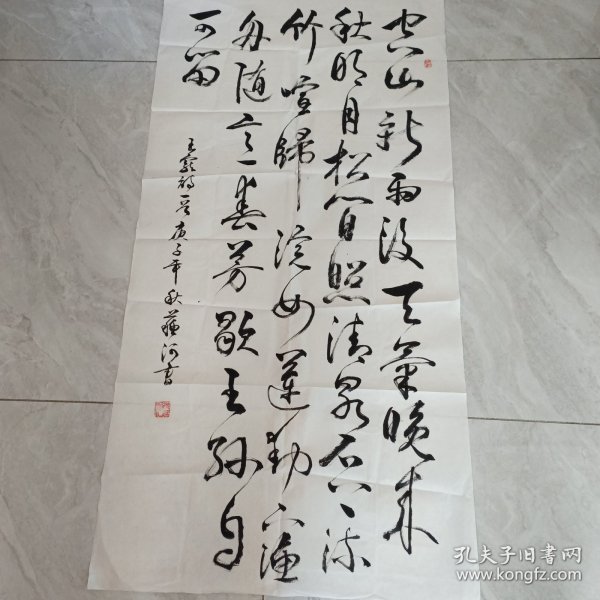 空山新雨後天氣晚來
秋明月松間照清泉石上流
竹喧歸浣女蓮動下漁
舟隨意春芳歇王孫自
可留
王詩一首庚子年秋河書
孔夫子旧书网
www.kongfz.com